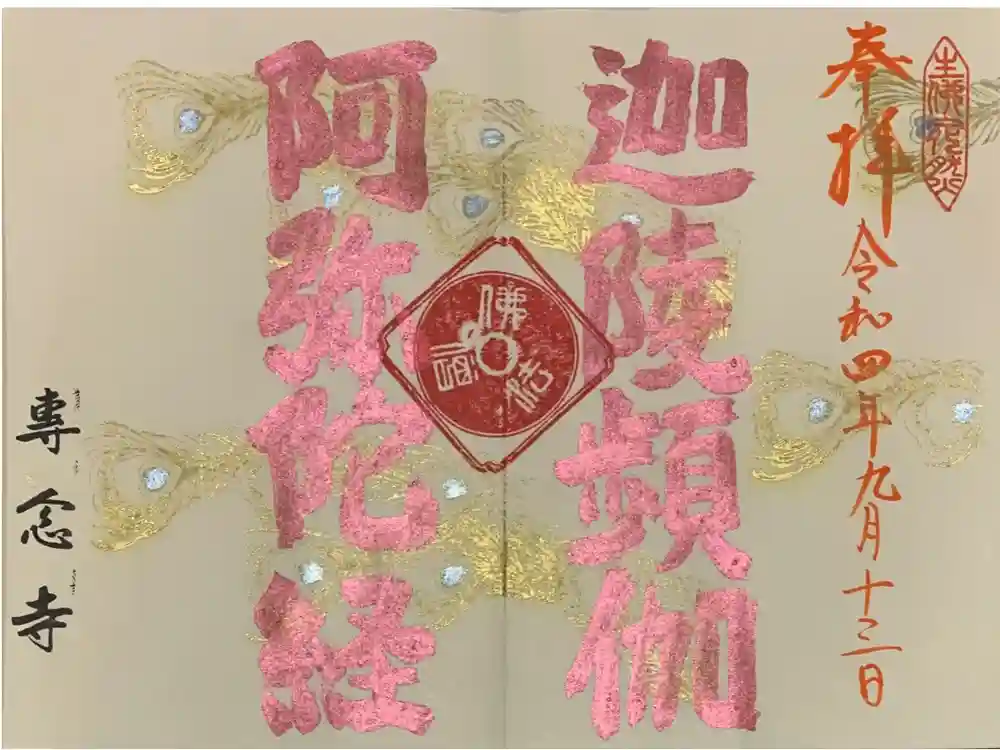 奉拝
令和四年九月十三日
迦陵頻伽
阿弥陀経
專念寺